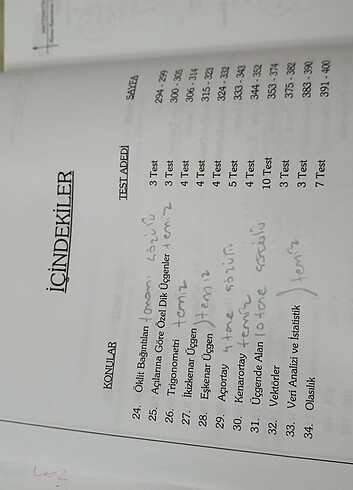 MATEMATİK
İÇİNDEKİLER
KONULAR TEST ADEDİ SAYFA
24. Öklit Bağıntıları tamamı çözülü 3 Test 294 - 299
25. Açılarına Göre Özel Dik Üçgenler temiz 3 Test 300 - 305
26. Trigonometri temiz 4 Test 306 - 314
27. İkizkenar Üçgen 4 Test 315 - 323
28. Eşkenar Üçgen ) temiz 4 Test 324 - 332
29. Açıortay 4 tane çözülü 5 Test 333 - 343
30. Kenarortay temiz 4 Test 344 - 352
31. Üçgende Alan 10 tane çözülü 10 Test 353 - 374
32. Vektörler 3 Test 375 - 382
33. Veri Analizi ve İstatistik ) temiz 3 Test 383 - 390
34. Olasılık 7 Test 391 - 400